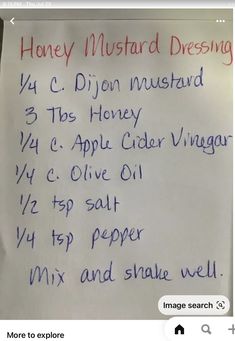 Honey Mustard Dressing
1/4 c. Dijon mustard
3 Tbs Honey
1/4 c. Apple Cider Vinegar
1/4 c. Olive Oil
1/2 tsp salt
1/4 tsp pepper
Mix and shake well.
Image search
More to explore